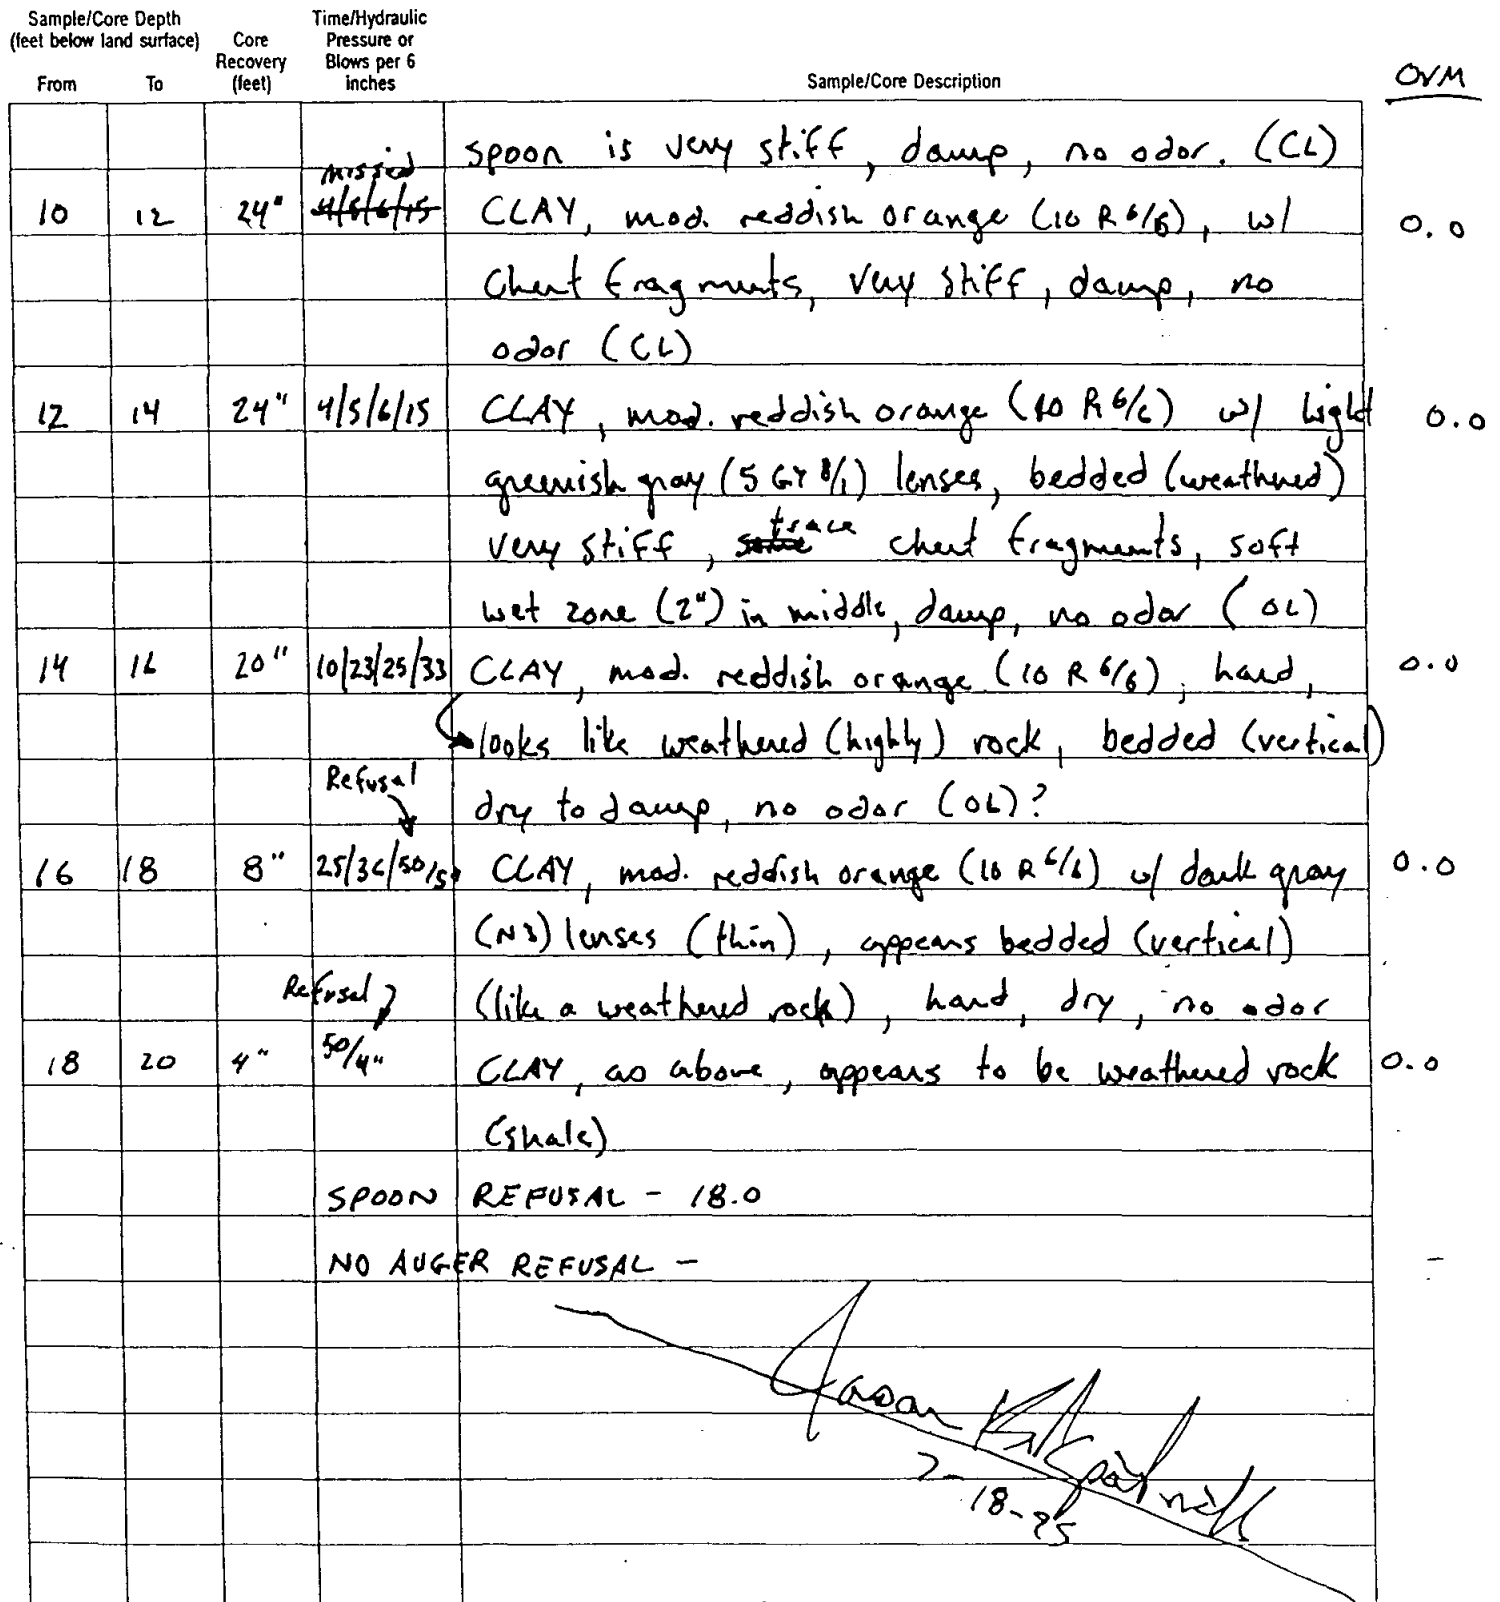 Sample/Core Depth
(feet below land surface)
From To
Core
Recovery
(feet)
Time/Hydraulic
Pressure or
Blows per 6
inches
Sample/Core Description
OVM
spoon is very stiff, damp, no odor. (CL)
missed
10 12 24" 4/5/6/15 CLAY, mod. reddish orange (10 R 6/6), w/ 0.0
Chert fragments, very stiff, damp, no
odor (CL)
12 14 24" 4/5/6/15 CLAY, mod. reddish orange (10 R 6/6) w/ light 0.0
greenish gray (5 GY 8/1) lenses, bedded (weathered)
very stiff, some trace chert fragments, soft
wet zone (2") in middle, damp, no odor (OL)
14 16 20" 10/23/25/33 CLAY, mod. reddish orange (10 R 6/6), hard, 0.0
looks like weathered (highly) rock, bedded (vertical)
Refusal
dry to damp, no odor (OL)?
16 18 8" 25/36/50/5 CLAY, mod. reddish orange (10 R 6/6) w/ dark gray 0.0
(N3) lenses (thin), appears bedded (vertical)
Refusal (like a weathered rock), hard, dry, no odor
18 20 4" 50/4" CLAY, as above, appears to be weathered rock 0.0
(shale)
SPOON REFUSAL - 18.0
NO AUGER REFUSAL -
Jason Kilpatrick
7-18-95